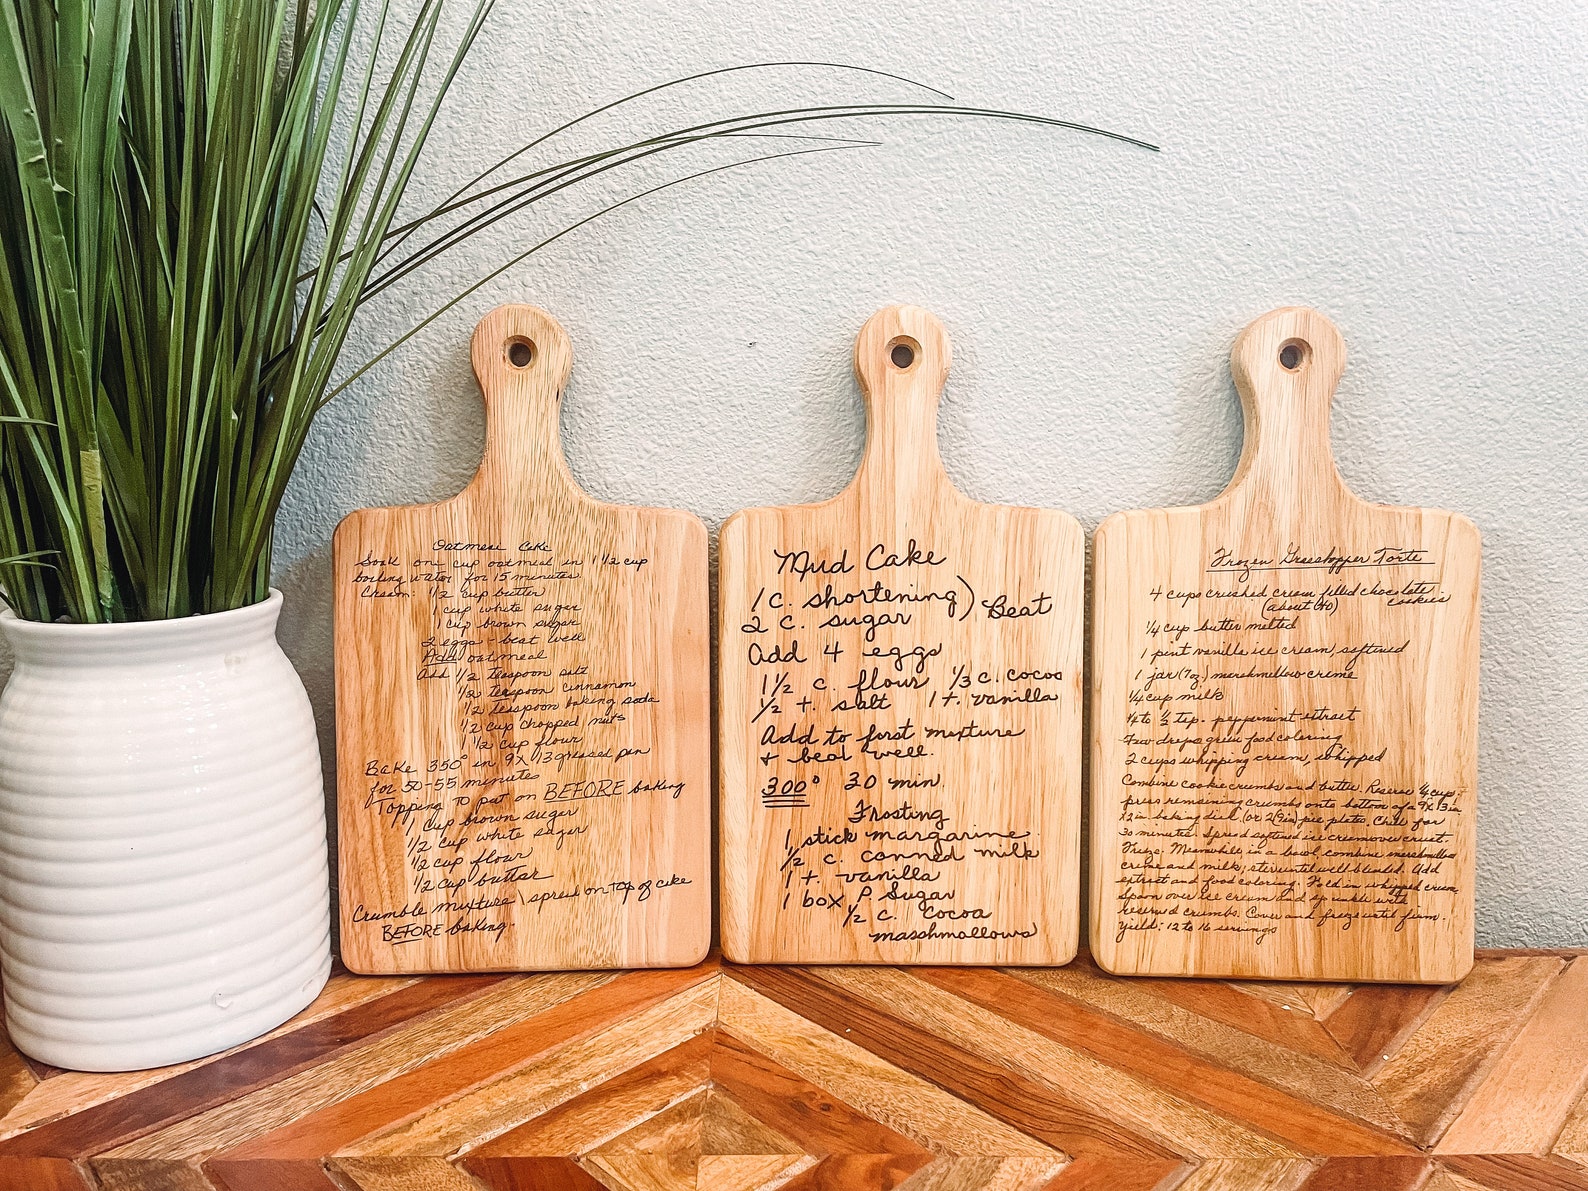 Oatmeal Cake
Soak one cup oatmeal in 1 1/2 cup
boiling water for 15 minutes
Cream: 1/2 cup butter
1 cup white sugar
1 cup brown sugar
2 eggs - beat well
Add oatmeal
Add 1/2 teaspoon salt
1/2 teaspoon cinnamon
1/2 teaspoon baking soda
1/2 cup chopped nuts
1 1/2 cup flour
Bake 350° in 9x13 greased pan
for 50-55 minutes
Topping to put on BEFORE baking
1 cup brown sugar
1/2 cup white sugar
1/2 cup flour
1/2 cup butter
Crumble mixture \ spread on top of cake
BEFORE baking.
Mud Cake
1 c. shortening) Beat
2 c. sugar
Add 4 eggs
1 1/2 c. flour 1/3 c. cocoa
1/2 t. salt 1 t. vanilla
Add to first mixture
+ beat well.
300° 30 min.
Frosting
1 stick margarine
1/2 c. canned milk
1 t. vanilla
1 box P. Sugar
1/2 c. cocoa
marshmallows
Frozen Grasshopper Torte
4 cups crushed cream filled chocolate
(about 40) cookies
1/4 cup butter melted
1 pint vanilla ice cream, softened
1 jar (7oz.) marshmallow creme
1/4 cup milk
1/4 to 1/2 tsp. peppermint extract
Few drops green food coloring
2 cups whipping cream, whipped
Combine cookie crumbs and butter. Reserve 1/4 cup +
press remaining crumbs onto bottom of a 9x13 in
x2 in baking dish (or 2 (9in) pie plates. Chill for
30 minutes. Spread softened ice cream over crust.
Freeze. Meanwhile in a bowl combine marshmallow
creme and milk; stir until well blended. Add
extract and food coloring. Fold in whipped cream.
Spoon over ice cream and sprinkle with
reserved crumbs. Cover and freeze until firm.
Yield: 12 to 16 servings